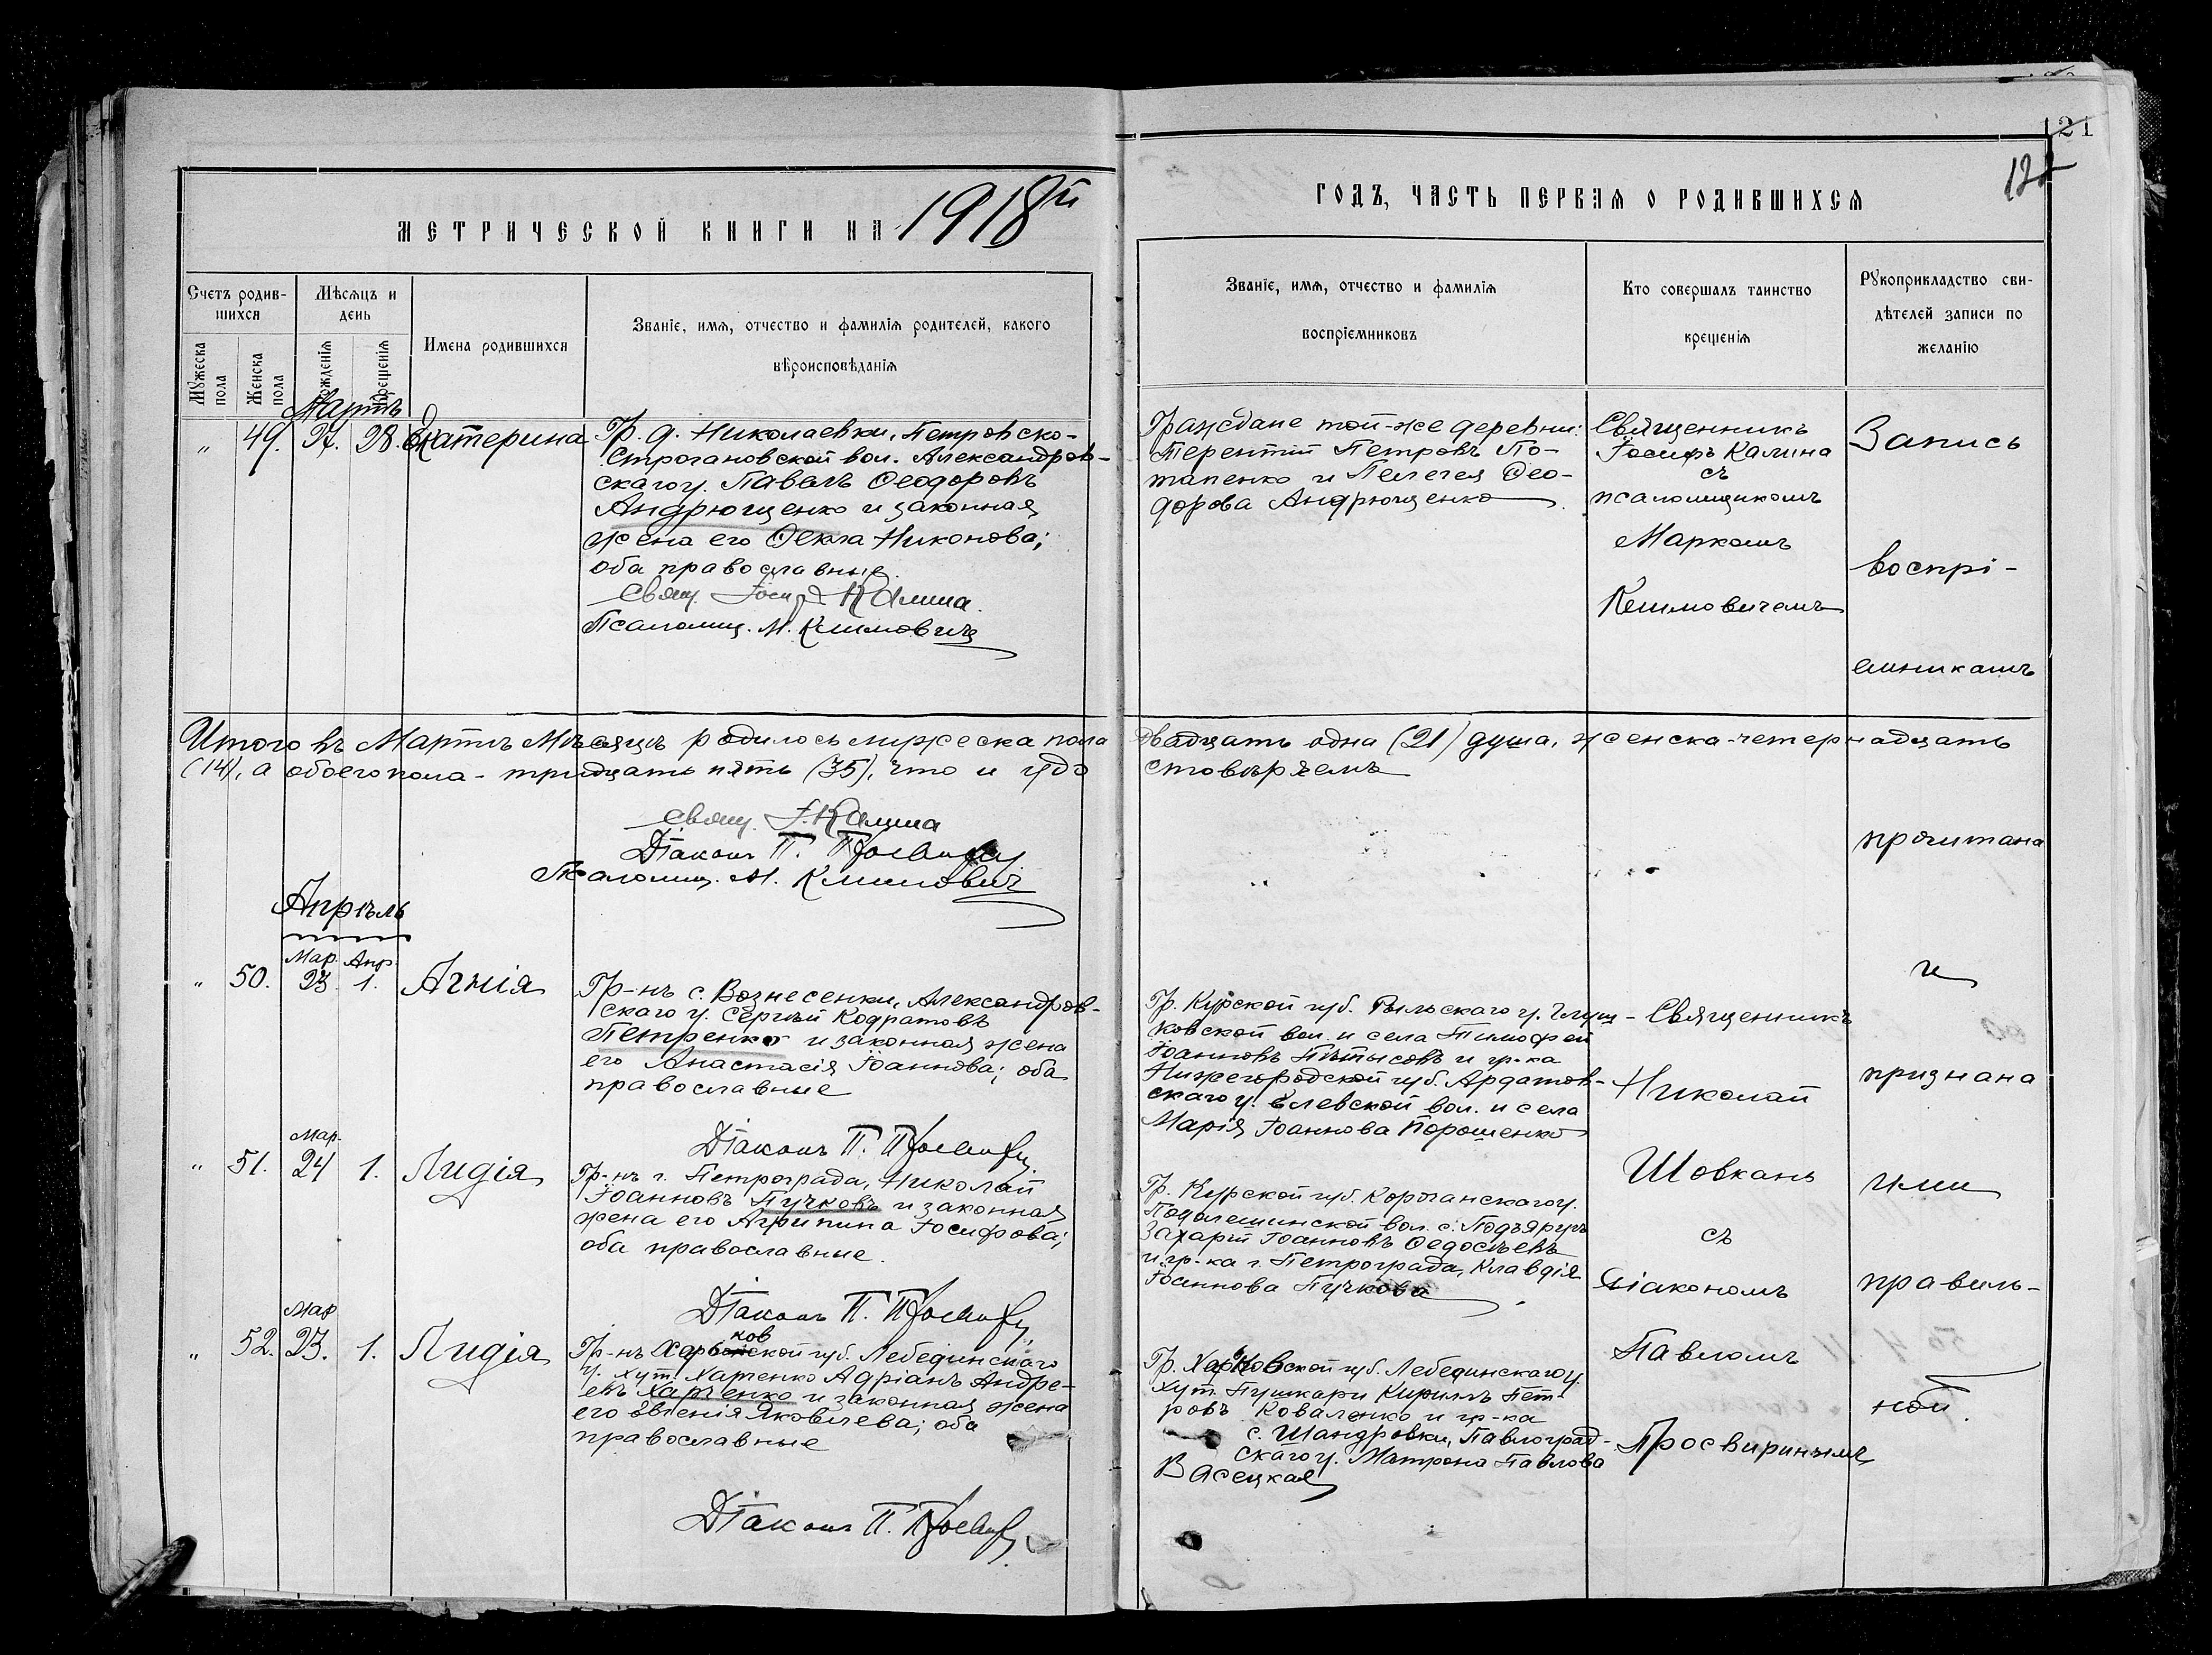 21
122
МЕТРИЧЕСКОЙ КНИГИ НА 1918й
ГОДЪ, ЧАСТЬ ПЕРВАЯ О РОДИВШИХСЯ
Счетъ родив-
шихся
Мужеска
пола
Женска
пола
Мѣсяцъ и
день
Рожденія
Крещенія
Имена родившихся
Званіе, имя, отчество и фамилія родителей, какого
вѣроисповѣданія
Званіе, имя, отчество и фамилія
воспріемниковъ
Кто совершалъ таинство
крещенія
Рукоприкладство сви-
дѣтелей записи по
желанію
Мартъ
" 49. 27. 28. Екатерина
Гр. д. Николаевки, Петровско-
Строгановской вол. Александров-
скаго у. Павелъ Ѳеодоровъ
Андрющенко и законная
жена его Ѳекла Никонова;
оба православные.
Свящ. Іосифъ Калина.
Псаломщ. М. Климовичъ
Граждане той-же деревни:
Терентій Петровъ По-
тапенко и Пелагея Ѳео-
дорова Андрющенко.
Священникъ
Іосифъ Калина
съ
псаломщикомъ
Маркомъ
Климовичемъ
Запись
воспрі-
емникамъ
прочитана
и
признана
ими
правиль-
ной.
Итого въ Мартѣ Мѣсяцѣ родилось мужеска пола двадцать одна (21) душа, женска-четернадцать
(14), а обоего пола - тридцать пять (35), что и удостовѣряемъ
Свящ. І. Калина
Діаконъ П. Просвирин
Псаломщ. М. Климовичъ
Апрѣль
Мар. Апр.
" 50. 23. 1. Агнія
Гр-нъ с. Вознесенки, Александров-
скаго у. Сергѣй Кодратовъ
Петренко и законная жена
его Анастасія Іоаннова; оба
православные
Діаконъ П. Просвирин
Гр. Курской губ. Рыльскаго у. Глуш-
ковской вол. и села Тимофей
Іоанновъ и гр-ка
Нижегородской губ. Ардатов-
скаго у. вол. и села
Марія Іоаннова Порошенко
Мар.
" 51. 24 1. Лидія
Гр-нъ г. Петрограда, Николай
Іоанновъ Пучковъ и законная
жена его Агрипина Іосифова;
оба православные.
Діаконъ П. Просвирин
Гр. Курской губ. Корочанскаго у.
вол. с. Подъяругъ
Захарій Іоанновъ Ѳедосѣевъ
и гр-ка г. Петрограда, Клавдія
Іоаннова Пучкова.
Мар
" 52. 23. 1. Лидія
Гр-нъ Харьковской губ. Лебединскаго
у. хут. Харченко Адріанъ Андре-
евъ Харченко и законная жена
его Евгенія Яковлева; оба
православные
Діаконъ П. Просвирин
Гр. Харьковской губ. Лебединскаго у.
хут. Пушкари Кириллъ Пет-
ровъ Коваленко и гр-ка
с. Шандровки, Павлоград-
скаго у. Матрона Павлова
Васецкая
Священникъ
Николай
Шовкань
съ
діакономъ
Павломъ
Просвиринымъ